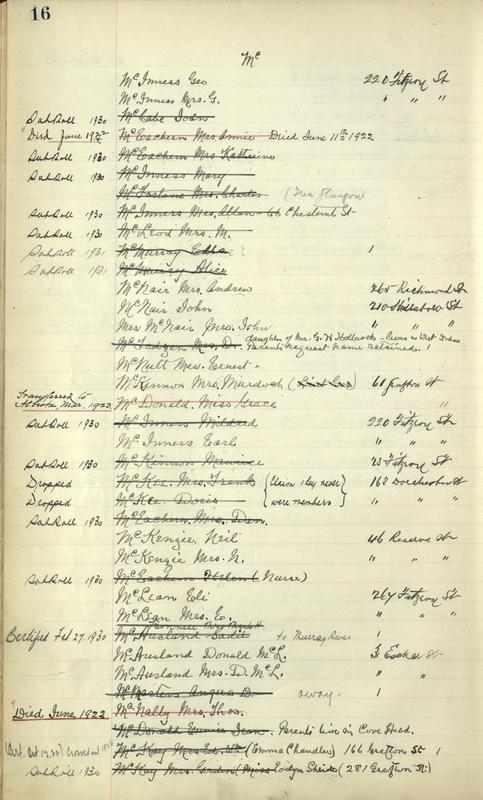 16
Mc
McInness Geo 220 Fitzroy St
McInness Mrs. G. " " "
Sub Roll 1930 McCabe Joan
Died June 1922 McEachern Mrs. Annie Died June 11th 1922
Sub Roll 1930 McEachern Mrs Katherine
Sub Roll 1930 McInness Mary
Mrs. Charles (Nee Glasgow)
Sub Roll 1930 McInnes Mrs. Allan - 66 Chestnut St
Sub Roll 1930 McLeod Mrs. M.
Sub Roll 1931 McMurray Ella 1
Sub Roll 1931 McMurray Alice
McNair Mrs. Andrew 265 Richmond St
McNair John 210 Hillsboro St
Mrs McNair Mrs. John " " "
Mrs. Dr. daughter of Mrs. G. H. - lives in West Indies
Parents request name retained. 1
McNutt Mrs. Ernest "
McKinnon Mrs. Murdoch 60 Grafton St
Transferred to
Mar. 1923 McDonald Miss Grace "
Sub Roll 1930 McInness Mildred 220 Fitzroy St
McInness Earl " " "
Sub Roll 1930 McKinnon Maurice 23 Fitzroy St
Dropped McKee Mrs. Frank (Claim they never 163 Dorchester St
Dropped McKee Doris were members) " " "
Sub Roll 1930 McEachern Mrs. Dan.
McKenzie, Neil 46 Reserve St
McKenzie Mrs. N. " "
Sub Roll 1930 McEachern Helen (Nurse)
McLean Eli 267 Fitzroy St
McLean Mrs. E. " " "
Certified Feb 27, 1930 McAusland Sadie to Murray River 1
McAusland Donald McL. 3 St
McAusland Mrs. D. McL. " "
McMasters Angus D. away - 1
Died June, 1922 McNally Mrs. Thos.
McDonald Eunice Jean. Parents live in Cove Head.
McKay Mrs Ed. (Emma Chandler) 166 Grafton St 1
Sub Roll 1930 McKay Mrs. Gordon (Miss Evelyn ) (281 Grafton St)